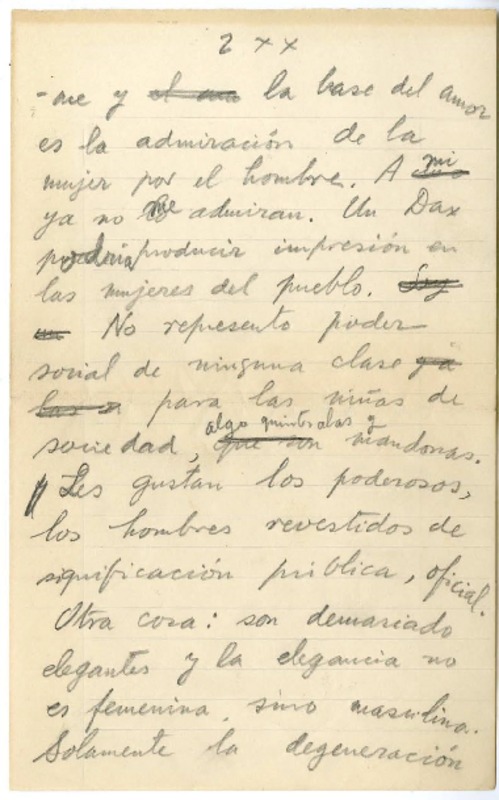 2 x x
-me y el la base del amor
es la admiración de la
mujer por el hombre. A mi
ya no me admiran. Un Dax
podría producir impresión en
las mujeres del pueblo. Soy
un No represento poder
social de ninguna clase
para las niñas de
sociedad, algo quintralas y
que son mandonas.
Les gustan los poderosos,
los hombres revestidos de
significación pública, oficial.
Otra cosa: son demasiado
elegantes y la elegancia no
es femenina, sino masculina.
Solamente la degeneración